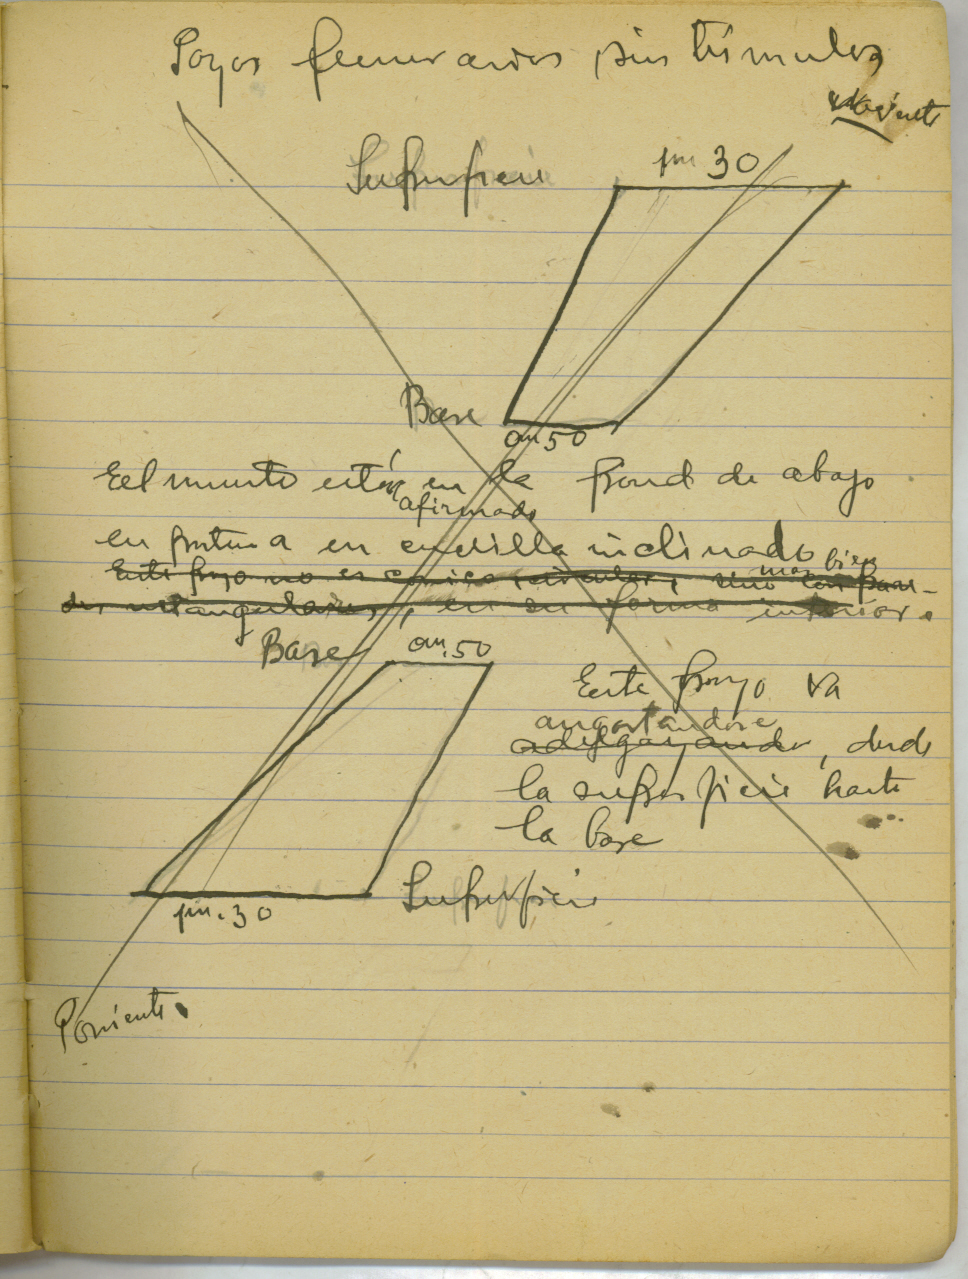 Pozos funerarios sin túmulos
Superficie
1m 30
Base
0m50
El muerto está en la pared de abajo
afirmado
en postura en cuclilla inclinado
mas bien
Este pozo no es cónico circular, sino con pare-
des rectangulares, en su forma interior.
Base
0m.50
Este pozo va
angostandose
adelgazando, desde
la superficie hasta
la base
Superficie
1m.30
Poniente